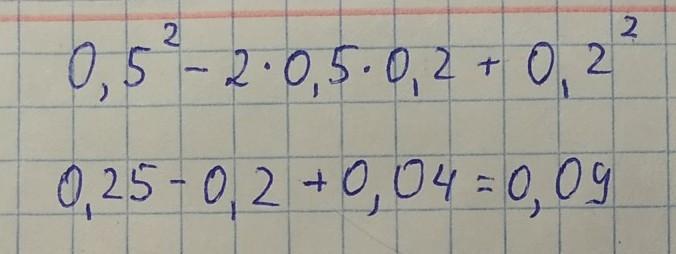 0,5² - 2·0,5·0,2 + 0,2²
0,25 - 0,2 + 0,04 = 0,09